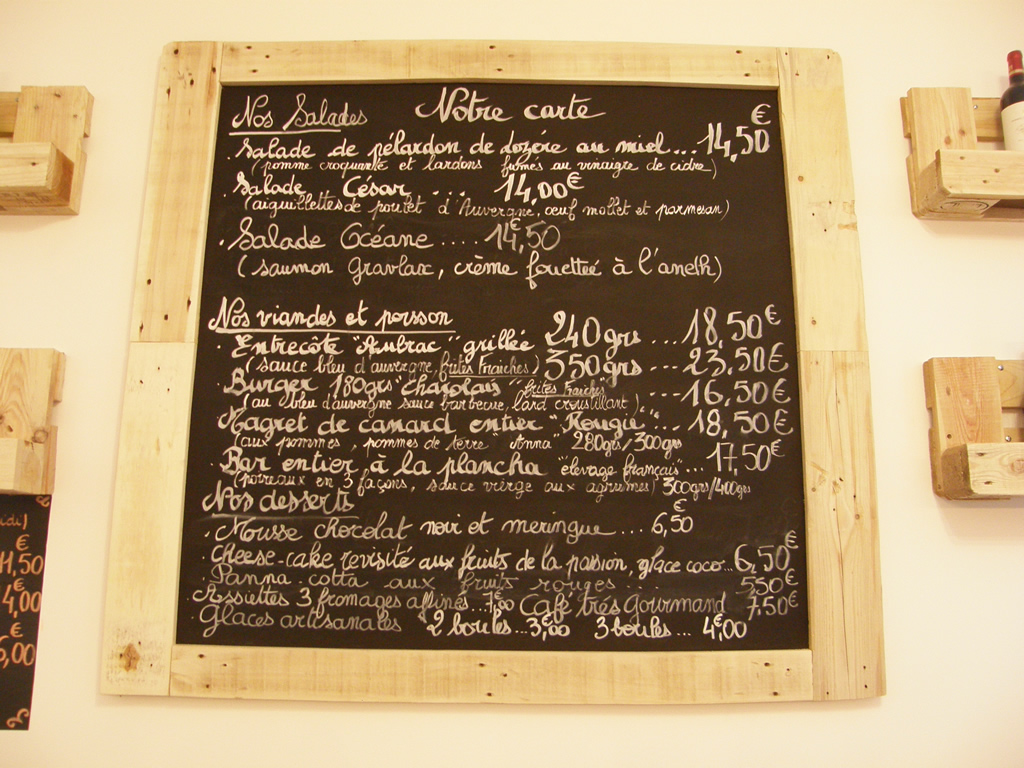 Notre carte
Nos Salades
€
. Salade de pélardon de lozère au miel... 14,50
(pomme croquante et lardons fumés au vinaigre de cidre)
. Salade César ... 14,00€
(aiguillettes de poulet d'Auvergne, œuf mollet et parmesan)
. Salade Océane .... 14,50€
(saumon gravlax, crème fouetteé à l'aneth)
Nos viandes et poisson
. Entrecôte "Aubrac" grillée 240grs ... 18,50€
(sauce bleu d'auvergne, frites Fraiches) 350grs ... 23,50€
. Burger 180grs "charolais" "frites Fraiches" ... 16,50€
(au bleu d'auvergne sauce barbecue, lard croustillant)
. Magret de canard entier "Rougié"... 18,50€
(aux pommes, pommes de terre "Anna" 280grs/300grs
. Bar entier à la plancha "élevage français"... 17,50€
(poireaux en 3 façons, sauce vierge aux agrumes) 300grs/400grs
Nos desserts
. Mousse chocolat noir et meringue ... 6,50€
. Cheese-cake revisité aux fruits de la passion, glace coco.. 6,50€
. Panna cotta aux fruits rouges. 5,50€
. Assiettes 3 fromages affinés...7€,00 Café très Gourmand 7,50€
. Glaces artisanales 2 boules...3€,00 3 boules... 4€,00
idi)
€
11,50
€
4,00
€
5,00